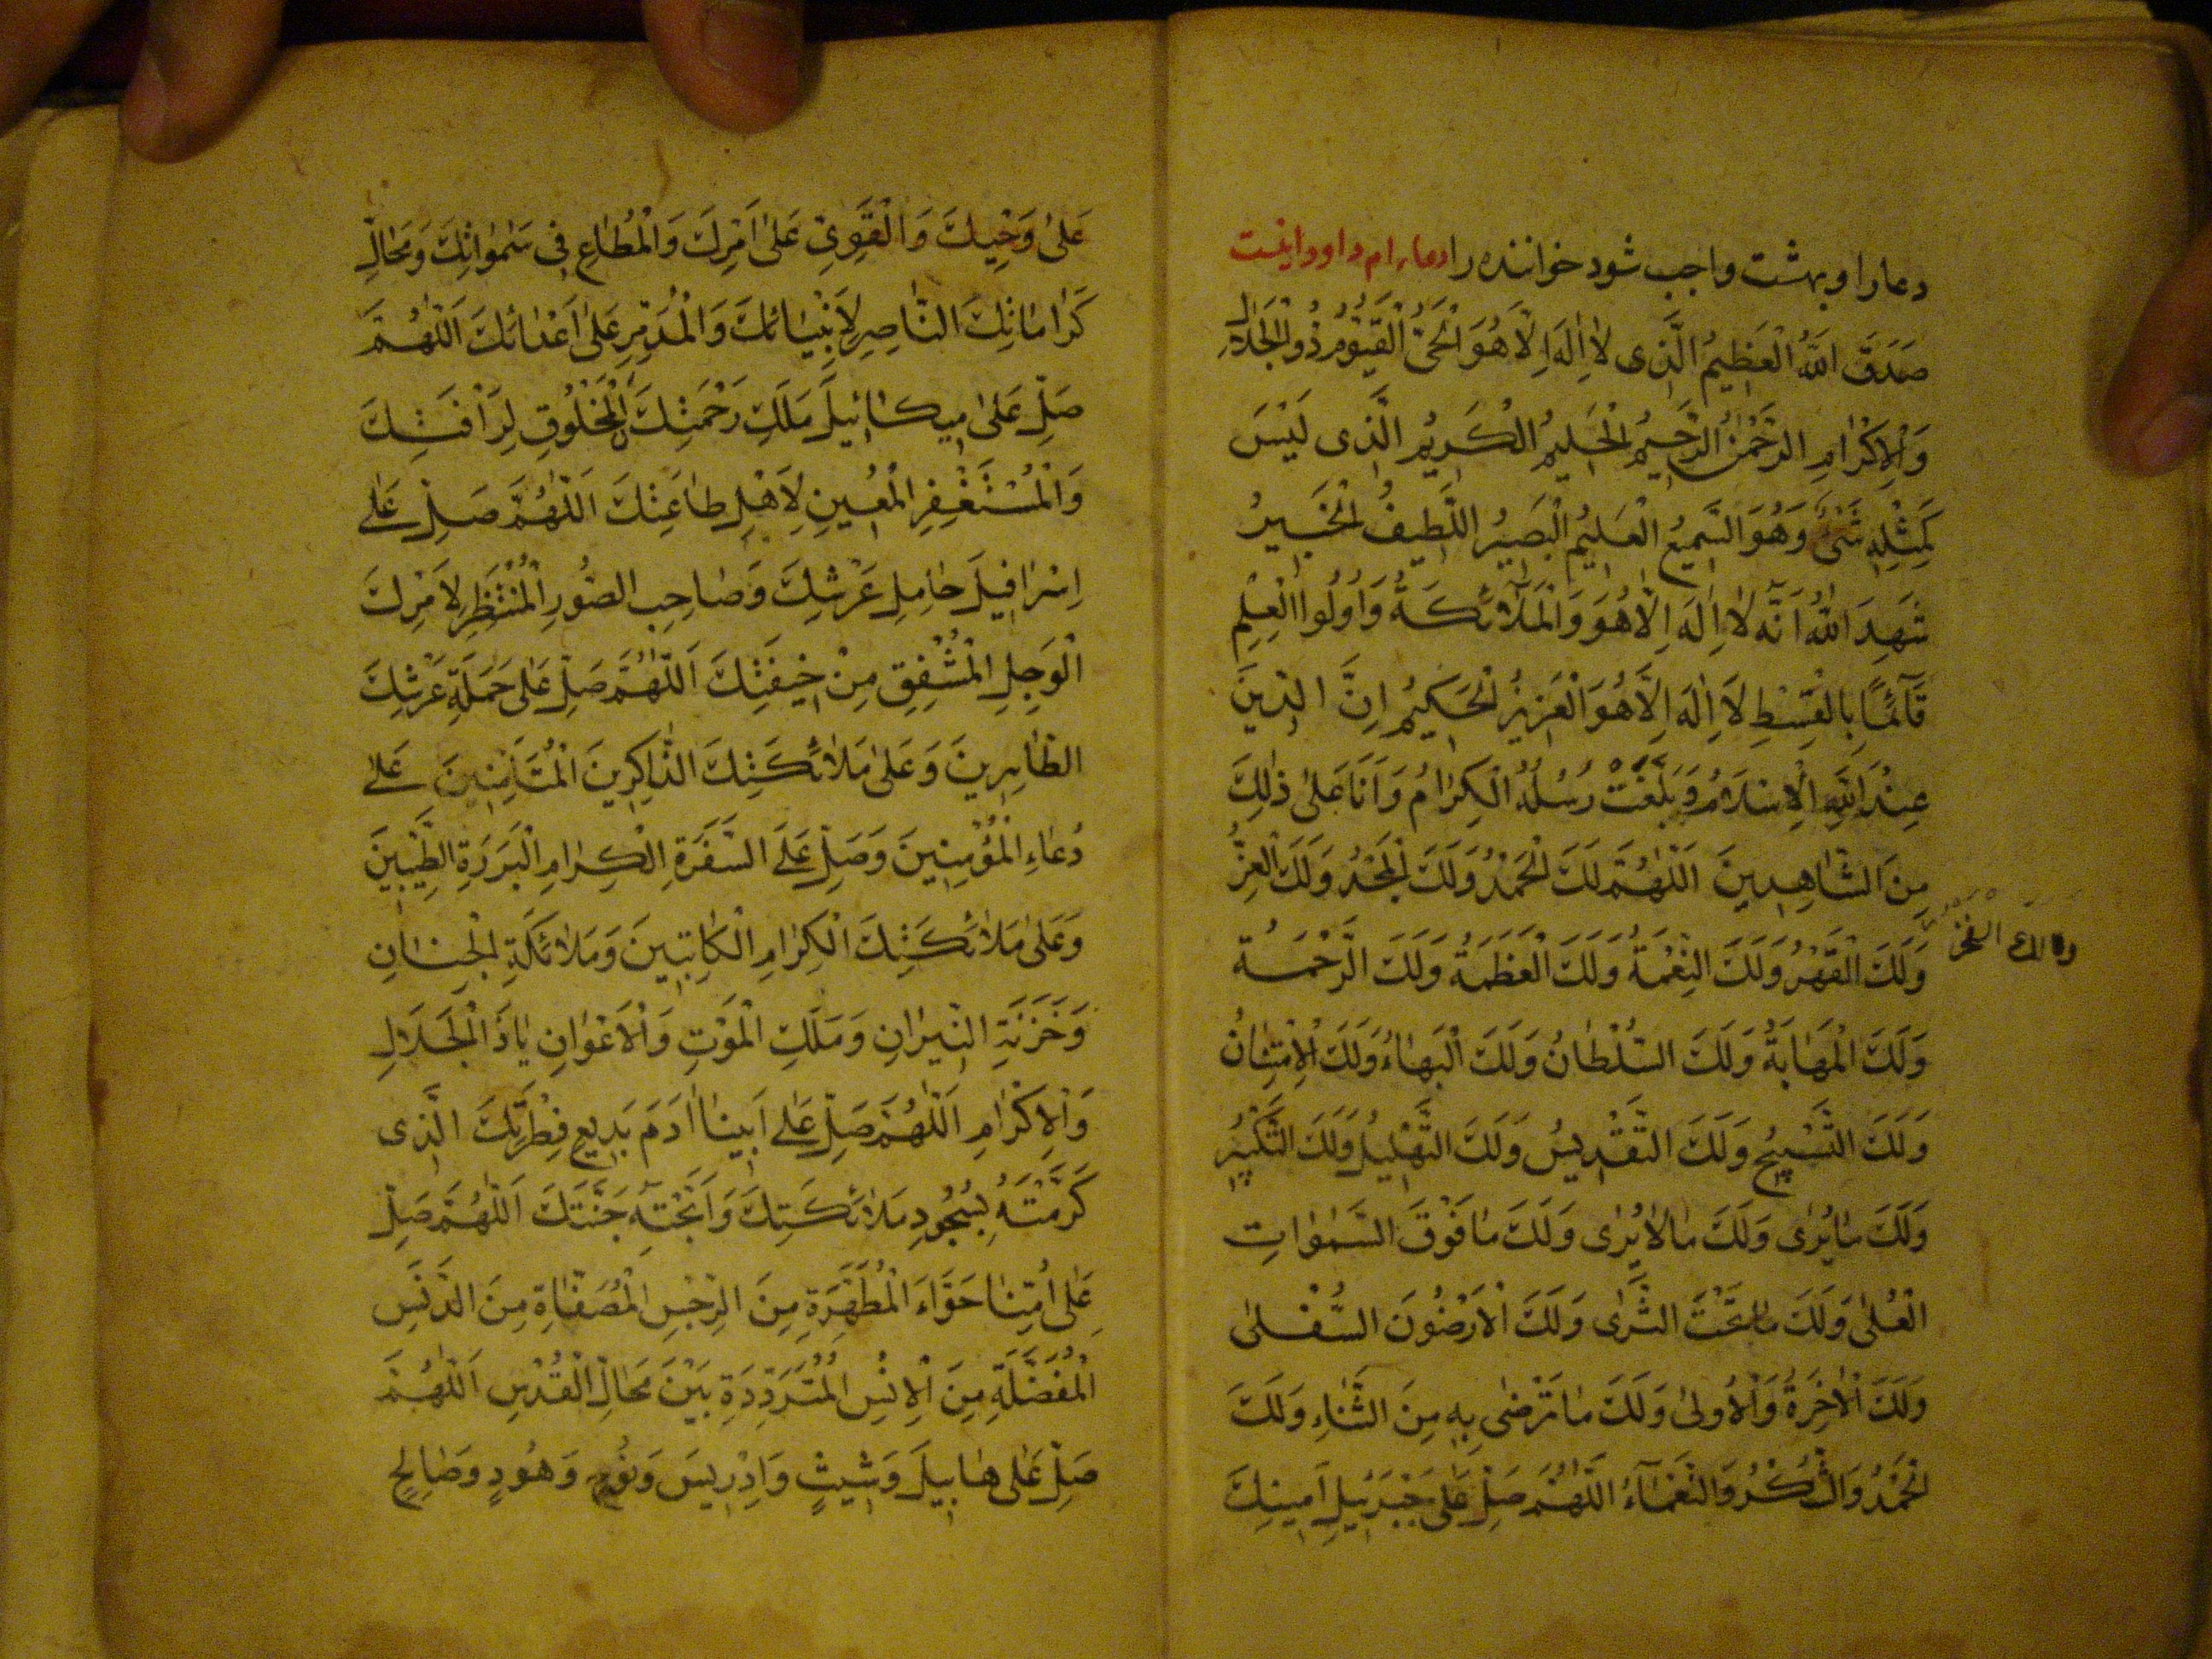 دعا را و بهشت واجب شود خواننده را دعاء ام داود اینست
صَدَقَ اللّٰهُ الْعَظِيمُ الَّذِى لاٰ اِلٰهَ اِلاّٰ هُوَ الْحَىُّ الْقَيُّومُ ذُو الْجَلاٰلِ
وَالْاِكْرٰامِ الرَّحْمٰنُ الرَّحِيمُ الْحَلِيمُ الْكَرِيمُ الَّذِى لَيْسَ
كَمِثْلِهِ شَىْءٌ وَهُوَ السَّمِيعُ الْعَلِيمُ الْبَصِيرُ اللَّطِيفُ الْخَبِيرُ
شَهِدَ اللّٰهُ اَنَّهُ لاٰ اِلٰهَ اِلاّٰ هُوَ وَالْمَلاٰئِكَةُ وَاُولُوا الْعِلْمِ
قٰآئِمًا بِالْقِسْطِ لاٰ اِلٰهَ اِلاّٰ هُوَ الْعَزِيزُ الْحَكِيمُ اِنَّ الدِّينَ
عِنْدَ اللّٰهِ الْاِسْلاٰمُ وَبَلَّغَتْ رُسُلُهُ الْكِرٰامُ وَاَنَا عَلىٰ ذٰلِكَ
مِنَ الشّٰاهِدِينَ اَللّٰهُمَّ لَكَ الْحَمْدُ وَلَكَ الْمَجْدُ وَلَكَ الْعِزُّ
وَلَكَ الْفَخْرُ
وَلَكَ الْقَهْرُ وَلَكَ النِّعْمَةُ وَلَكَ الْعَظَمَةُ وَلَكَ الرَّحْمَةُ
وَلَكَ الْمَهٰابَةُ وَلَكَ السُّلْطٰانُ وَلَكَ الْبَهٰاءُ وَلَكَ الْاِمْتِنٰانُ
وَلَكَ التَّسْبِيحُ وَلَكَ التَّقْدِيسُ وَلَكَ التَّهْلِيلُ وَلَكَ التَّكْبِيرُ
وَلَكَ مٰا يُرىٰ وَلَكَ مٰا لاٰ يُرىٰ وَلَكَ مٰا فَوْقَ السَّمٰوٰاتِ
الْعُلىٰ وَلَكَ مٰا تَحْتَ الثَّرىٰ وَلَكَ الْاَرَضُونَ السُّفْلىٰ
وَلَكَ الْاٰخِرَةُ وَالْاُولىٰ وَلَكَ مٰا تَرْضىٰ بِهِ مِنَ الثَّنٰاءِ وَلَكَ
الْحَمْدُ وَالشُّكْرُ وَالنَّعْمٰآءُ اَللّٰهُمَّ صَلِّ عَلىٰ جَبْرَئِيلَ اَمِينِكَ
عَلىٰ وَحْيِكَ وَالْقَوِىِّ عَلىٰ اَمْرِكَ وَالْمُطٰاعِ فِى سَمٰوٰاتِكَ وَمَحٰالِّ
كَرٰامٰاتِكَ النّٰاصِرِ لِاَنْبِيٰائِكَ وَالْمُدَمِّرِ عَلىٰ اَعْدٰائِكَ اَللّٰهُمَّ
صَلِّ عَلىٰ مِيكٰائِيلَ مَلَكِ رَحْمَتِكَ الْمَخْلُوقِ لِرَأْفَتِكَ
وَالْمُسْتَغْفِرِ الْمُعِينِ لِاَهْلِ طٰاعَتِكَ اَللّٰهُمَّ صَلِّ عَلىٰ
اِسْرٰافِيلَ حٰامِلِ عَرْشِكَ وَصٰاحِبِ الصُّورِ الْمُنْتَظِرِ لِاَمْرِكَ
الْوَجِلِ الْمُشْفِقِ مِنْ خِيفَتِكَ اَللّٰهُمَّ صَلِّ عَلىٰ حَمَلَةِ عَرْشِكَ
الطّٰاهِرِينَ وَعَلىٰ مَلاٰئِكَتِكَ الذّٰاكِرِينَ الْمُتَأَمِّنِينَ عَلىٰ
دُعٰاءِ الْمُؤْمِنِينَ وَصَلِّ عَلَى السَّفَرَةِ الْكِرٰامِ الْبَرَرَةِ الطَّيِّبِينَ
وَعَلىٰ مَلاٰئِكَتِكَ الْكِرٰامِ الْكٰاتِبِينَ وَمَلاٰئِكَةِ الْجِنٰانِ
وَخَزَنَةِ النِّيرٰانِ وَمَلَكِ الْمَوْتِ وَالْاَعْوٰانِ يٰا ذَا الْجَلاٰلِ
وَالْاِكْرٰامِ اَللّٰهُمَّ صَلِّ عَلىٰ اَبِينٰا اٰدَمَ بَدِيعِ فِطْرَتِكَ الَّذِى
كَرَّمْتَهُ بِسُجُودِ مَلاٰئِكَتِكَ وَاَبَحْتَهُ جَنَّتَكَ اَللّٰهُمَّ صَلِّ
عَلىٰ اُمِّنٰا حَوّٰاءَ الْمُطَهَّرَةِ مِنَ الرِّجْسِ الْمُصَفّٰاةِ مِنَ الدَّنَسِ
الْمُفَضَّلَةِ مِنَ الْاِنْسِ الْمُتَرَدِّدَةِ بَيْنَ مَحٰالِّ الْقُدْسِ اَللّٰهُمَّ
صَلِّ عَلىٰ هٰابِيلَ وَشِيثٍ وَاِدْرِيسَ وَنُوحٍ وَهُودٍ وَصٰالِحٍ